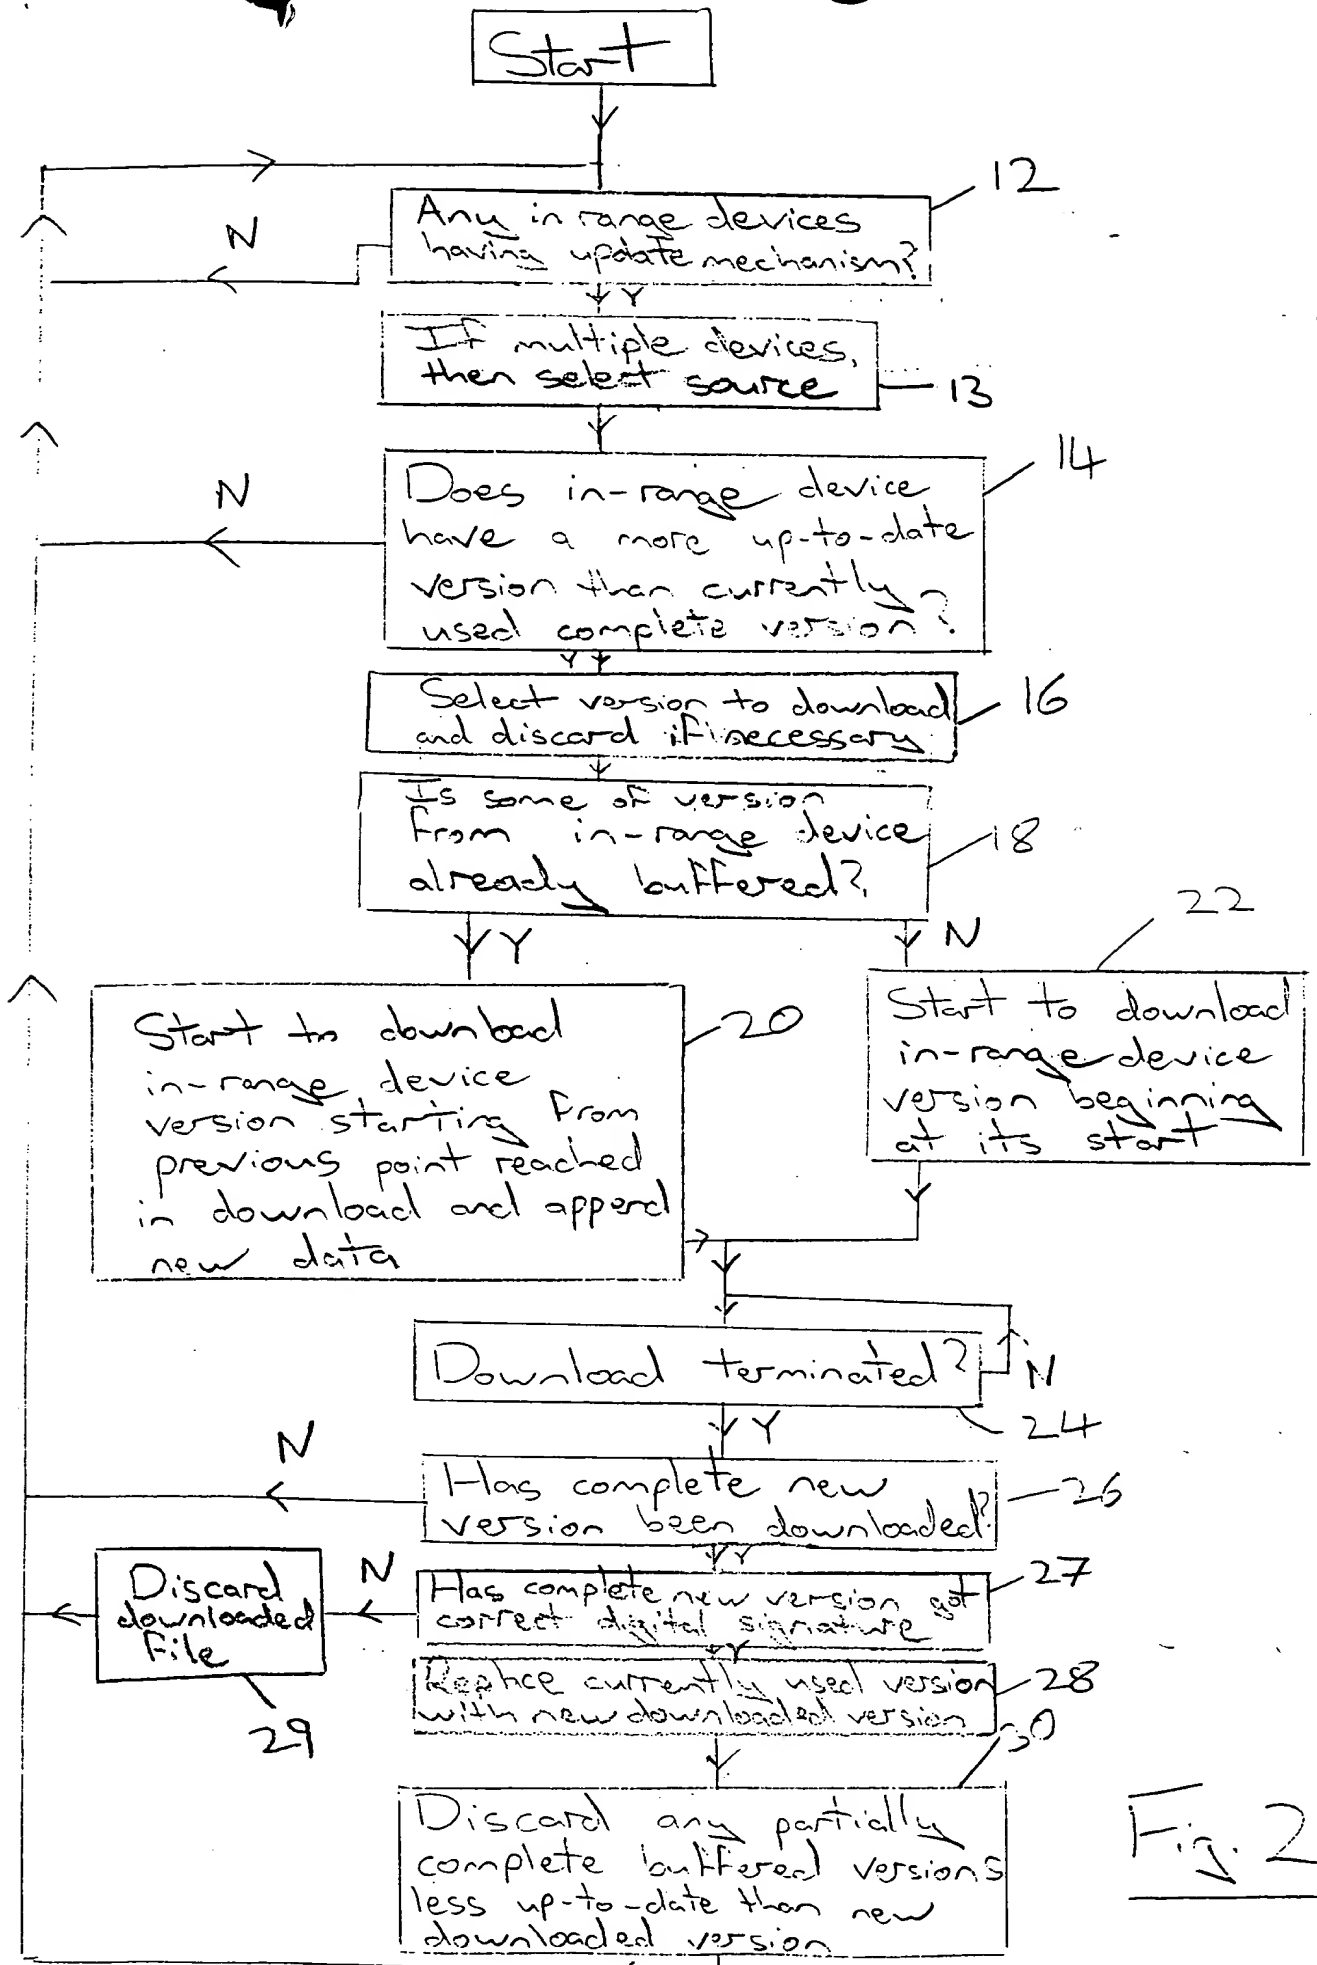 Start
12
Any in range devices
having update mechanism?
N
Y
If multiple devices,
then select source
13
14
Does in-range device
have a more up-to-date
version than currently
used complete version?
N
Y
Select version to download
and discard if necessary
16
Is some of version
from in-range device
already buffered?
18
Y
N
22
Start to download
in-range device
version starting from
previous point reached
in download and append
new data
20
Start to download
in-range device
version beginning
at its start
Download terminated?
N
24
Y
N
Has complete new
version been downloaded?
26
Y
Discard
downloaded
file
29
N
Has complete new version got
correct digital signature
27
Y
Replace currently used version
with new downloaded version
28
30
Discard any partially
complete buffered versions
less up-to-date than new
downloaded version
Fig. 2